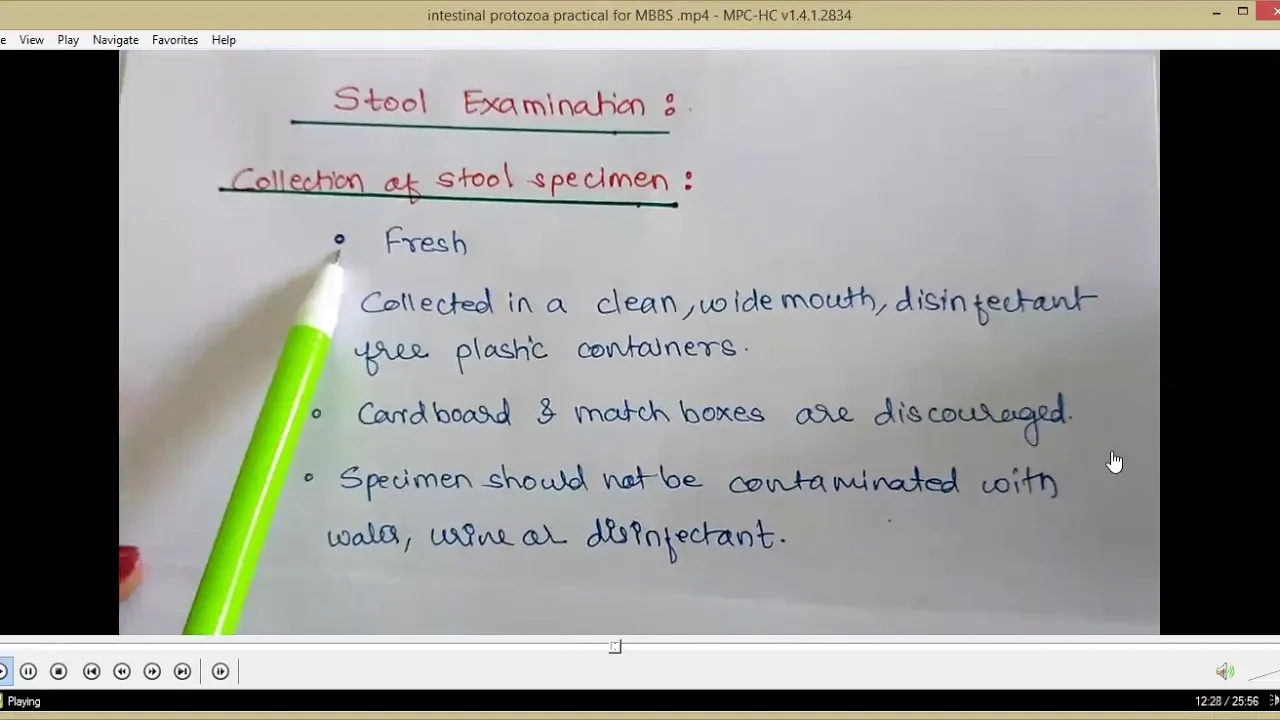 intestinal protozoa practical for MBBS .mp4 - MPC-HC v1.4.1.2834
e View Play Navigate Favorites Help
Stool Examination :
Collection of stool specimen :
Fresh
Collected in a clean, wide mouth, disinfectant
free plastic containers.
Cardboard & match boxes are discouraged.
Specimen should not be contaminated with
water, urine or disinfectant.
Playing 12:28 / 25:56